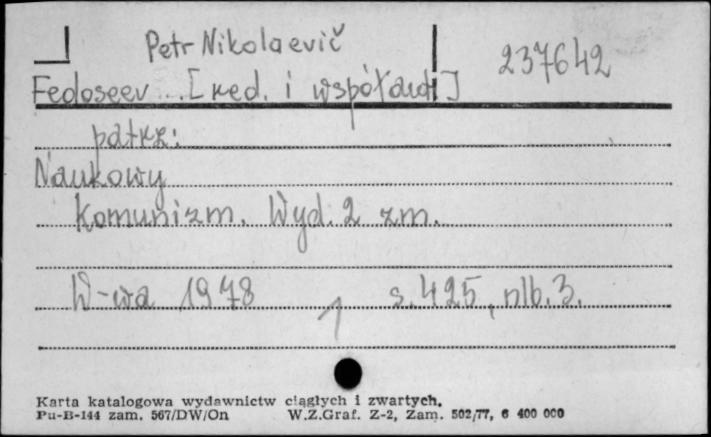 Petr Nikolaevič
237642
Fedoseev [red. i współaut]
patrz:
Naukowy
Komunizm. Wyd. 2 zm.
W-wa 1978 s. 425, nlb. 3.
Karta katalogowa wydawnictw ciągłych i zwartych.
Pu-B-144 zam. 567/DW/On W.Z.Graf. Z-2, Zam. 502/77, 6 400 000